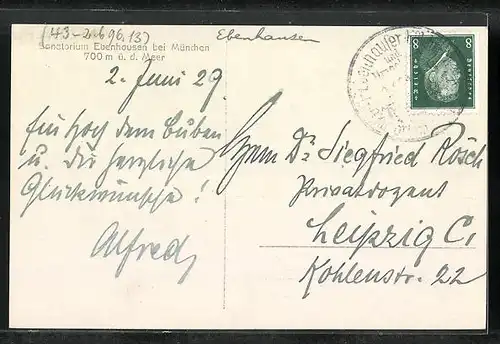 (43-2696.13)
Ebenhausen
Sanatorium Ebenhausen bei München
700 m ü. d. Meer
2. Juni 29.
Ein Hoch dem Buben
u. Dir herzliche
Glückwünsche!
Alfred
Herrn Dr Siegfried Rösch
Privatdozent
Leipzig C.
Kohlenstr. 22
8 8